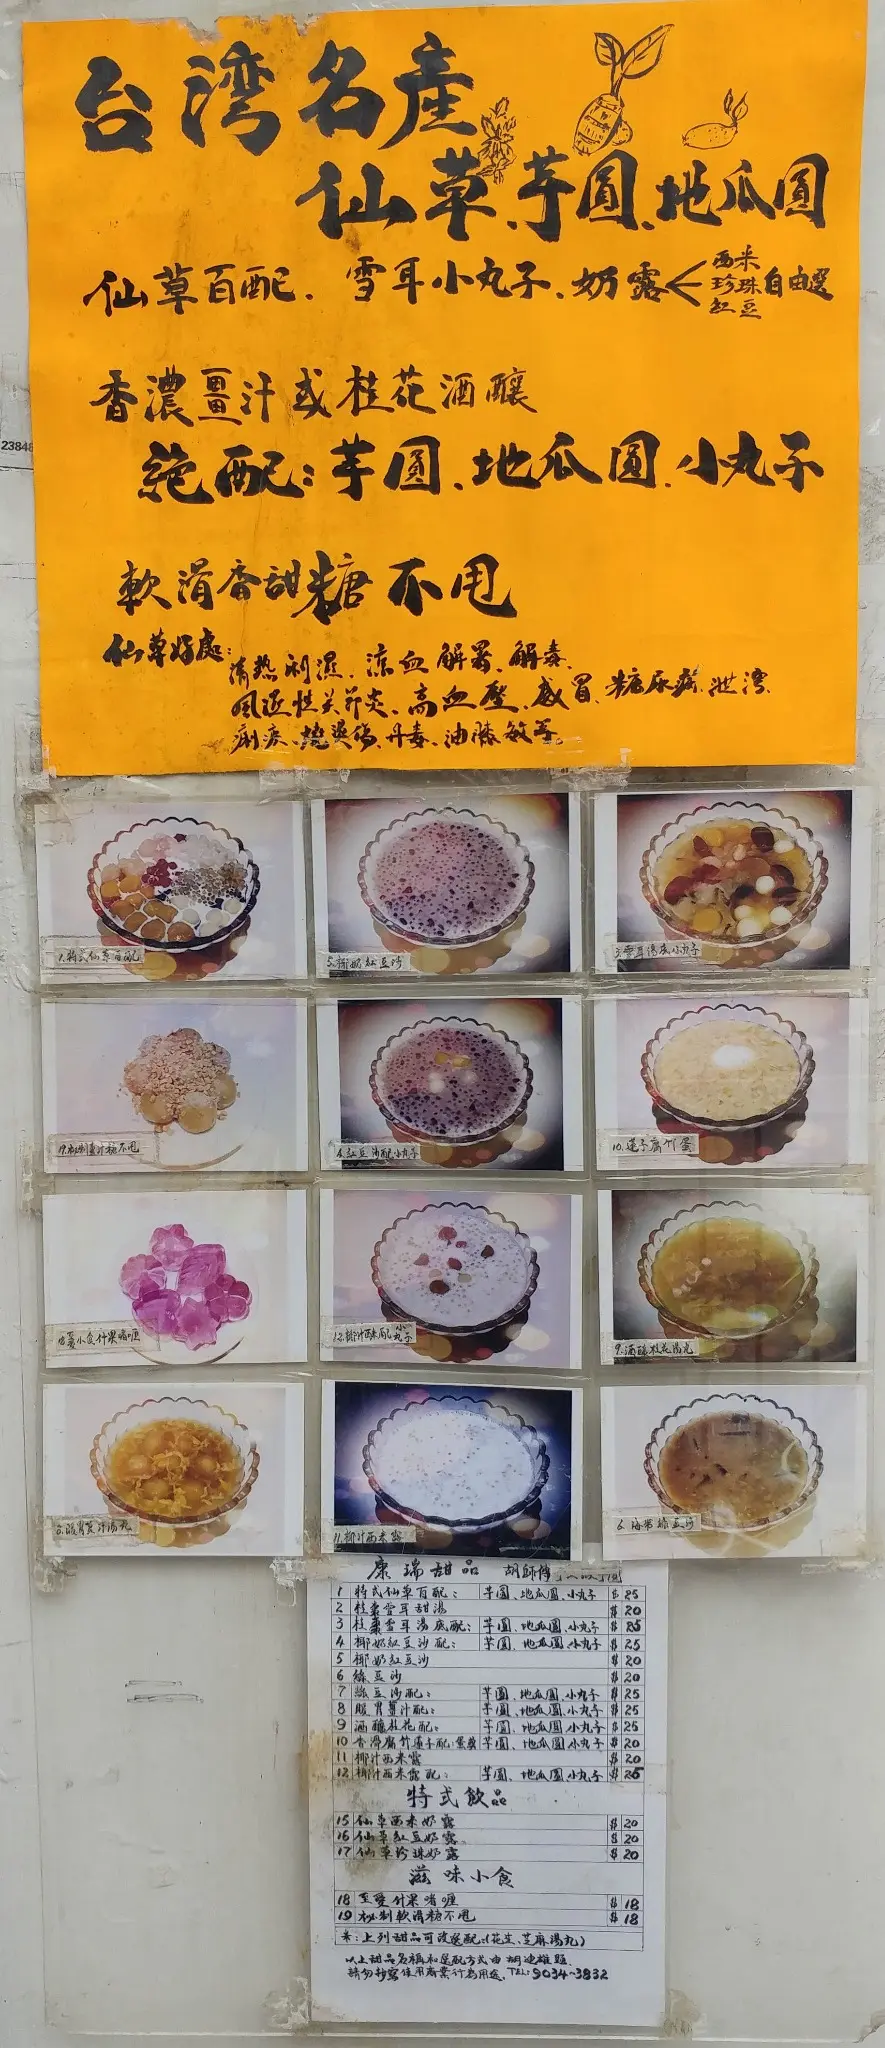 台湾名產
仙草、芋圓、地瓜圓
仙草百配、雪耳小丸子、奶露
西米
珍珠
紅豆
自由選
23848
香濃薑汁或桂花酒釀
絕配：芋圓、地瓜圓、小丸子
軟滑香甜糖不甩
仙草好處：
清熱利濕、涼血解暑、解毒、
風湿性关节炎、高血壓、感冒、糖尿病、泄瀉、
痢疾、燒燙傷、丹毒、
1.特式仙草百配
5.椰奶紅豆沙
3.雪耳湯底小丸子
19.秘制薑汁糖不甩
4.紅豆沙配小丸子
10.蓮子腐竹蛋
小食什果啫喱
12.椰汁西米配小丸子
9.酒釀桂花湯丸
8.暖胃薑汁湯丸
11.椰汁西米露
6.海带綠豆沙
康瑞甜品 胡師傅
1 特式仙草百配： 芋圓、地瓜圓、小丸子 $25
2 桂棗雪耳甜湯 $20
3 桂棗雪耳湯底配： 芋圓、地瓜圓、小丸子 $25
4 椰奶紅豆沙配： 芋圓、地瓜圓、小丸子 $25
5 椰奶紅豆沙 $20
6 綠豆沙 $20
7 綠豆沙配： 芋圓、地瓜圓、小丸子 $25
8 暖胃薑汁配： 芋圓、地瓜圓、小丸子 $25
9 酒釀桂花配： 芋圓、地瓜圓、小丸子 $25
10 香滑腐竹蓮子配： 芋圓、地瓜圓、小丸子 $20
11 椰汁西米露 $20
12 椰汁西米露配： 芋圓、地瓜圓、小丸子 $25
特式飲品
15 仙草西米奶露 $20
16 仙草紅豆奶露 $20
17 仙草珍珠奶露 $20
滋味小食
18 至愛什果啫喱 $18
19 秘制軟滑糖不甩 $18
*：上列甜品可改選配：(花生、芝麻湯丸)
以上甜品名稱和選配方式由胡迪雄題
請勿抄寫使用商業行為用途。TEL：9034-3832